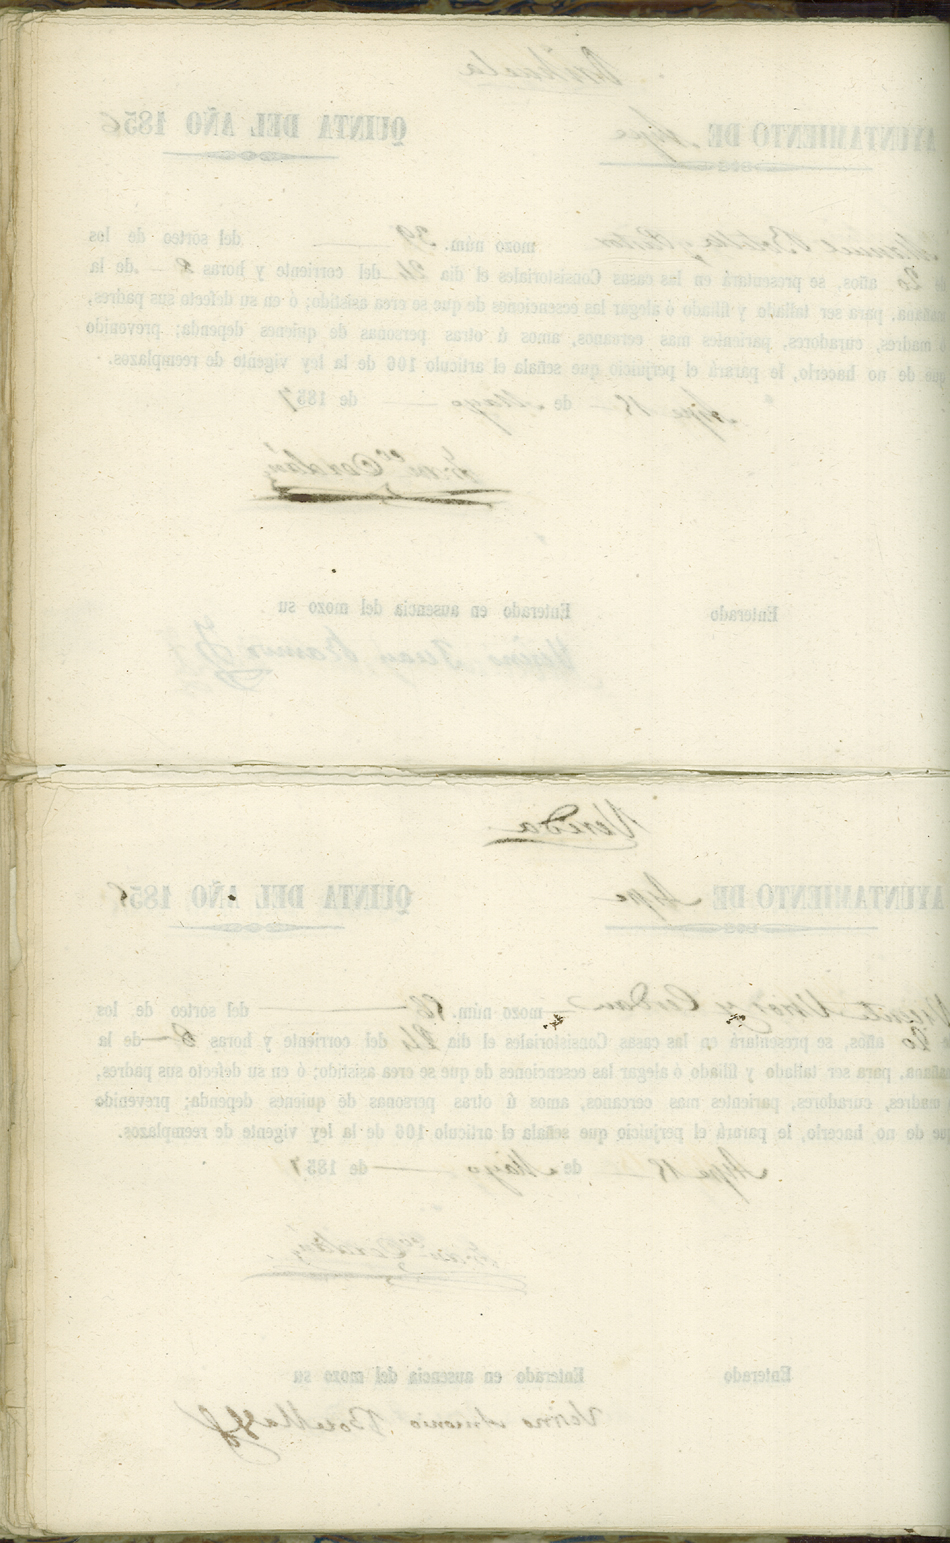 AYUNTAMIENTO DE Aspe QUINTA DEL AÑO 1856
Manuel Botella y Pastor mozo núm. 39 del sorteo de los
de 20 años, se presentará en las casas Consistoriales el dia 24 del corriente y horas 8 de la
mañana, para ser tallado y filiado ó alegar las ecsenciones de que se crea asistido; ó en su defecto sus padres,
ó madres, curadores, parientes mas cercanos, amos ú otras personas de quienes dependa; prevenido
que de no hacerlo, le parará el perjuicio que señala el artículo 106 de la ley vigente de reemplazos.
Aspe 18 de Mayo de 1857
Enterado Enterado en ausencia del mozo su
Vereda
AYUNTAMIENTO DE Aspe QUINTA DEL AÑO 185
Vicente y Cerdan mozo núm. 86 del sorteo de los
de 20 años, se presentará en las casas Consistoriales el dia 24 del corriente y horas 8 de la
mañana, para ser tallado y filiado ó alegar las ecsenciones de que se crea asistido; ó en su defecto sus padres,
ó madres, curadores, parientes mas cercanos, amos ú otras personas de quienes dependa; prevenido
que de no hacerlo, le parará el perjuicio que señala el artículo 106 de la ley vigente de reemplazos.
Aspe 18 de Mayo de 1857
Enterado Enterado en ausencia del mozo su
Vecino Antonio Botella